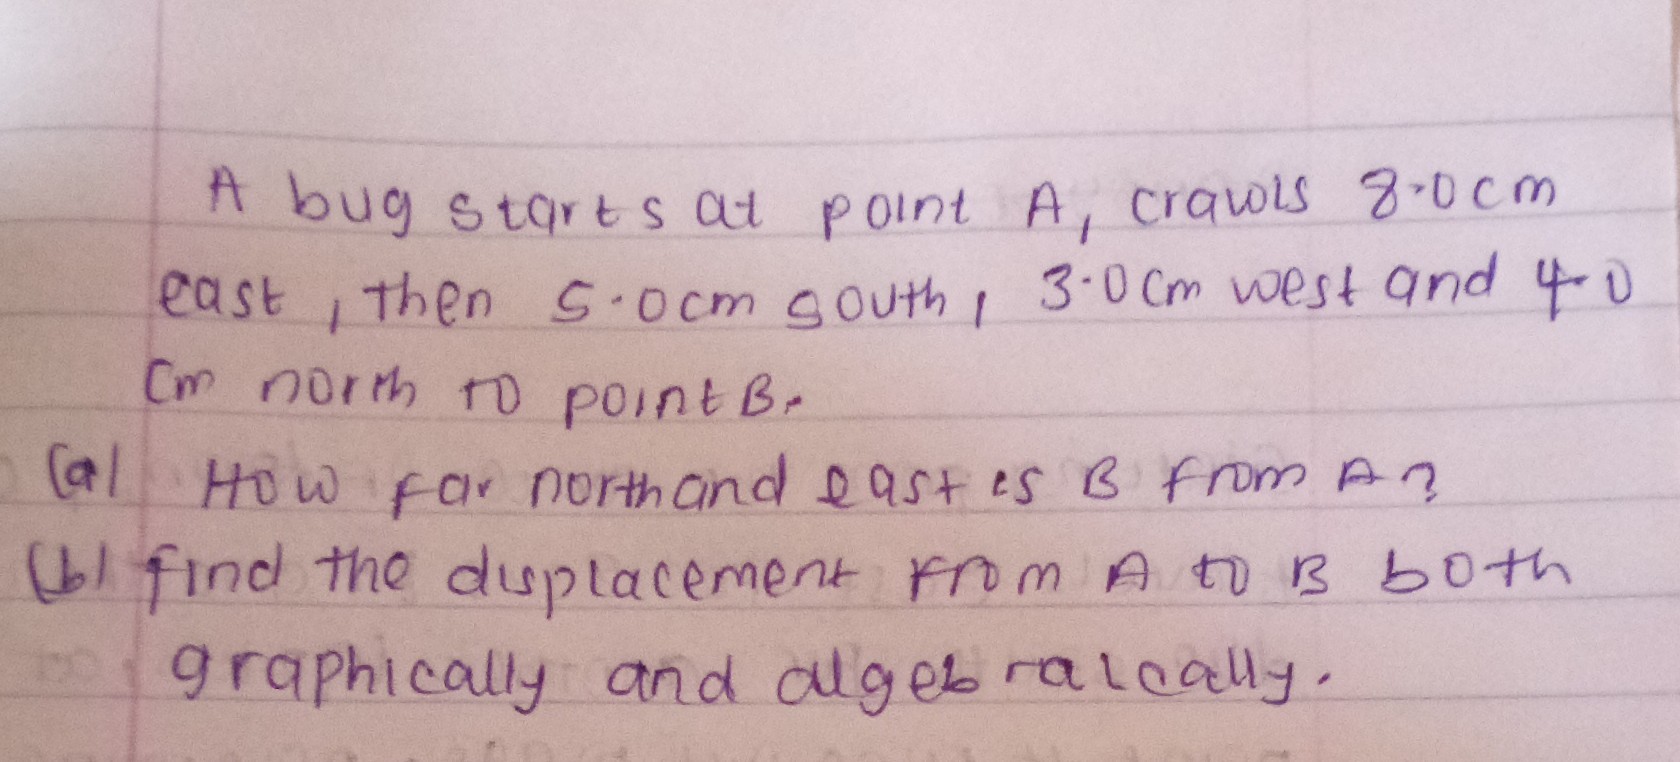 A bug starts at point A, crawls 8.0cm
east, then 5.0cm south, 3.0cm west and 4.0
cm north to point B.
(a) How far north and east is B from A?
(b) find the displacement from A to B both
graphically and algebraically.